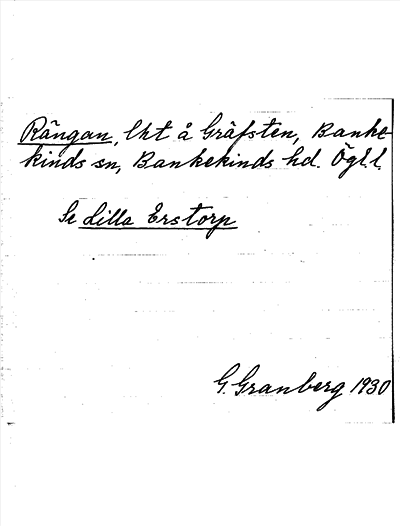 Rängan, lht å Gräfsten, Banke-
kinds sn, Bankekinds hd. Ögl.l.
Se Lilla Erstorp
G. Granberg 1930